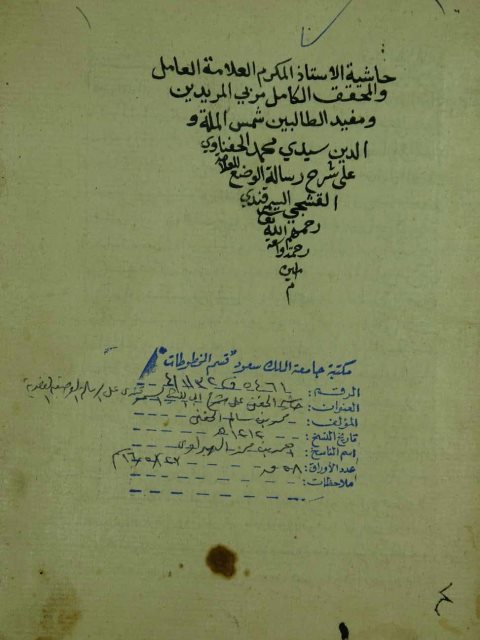 حاشية الاستاذ المكرم العلامة العامل
والمحقق الكامل مربي المريدين
ومفيد الطالبين شمس الملة و
الدين سيدي محمد الحفناوي
على شرح رسالة الوضع للعلامة
القشجي السمرقندي
رحمهم الله تعالى
رحمة واسعة
امين
م
مكتبة جامعة الملك سعود قسم المخطوطات
الرقم: ٥٤٦١
العنوان: حاشية الحفني على شرح
المؤلف: محمد بن سالم الحفني
تاريخ النسخ: ١٢١٢ هـ
اسم الناسخ:
عدد الأوراق: ٥٨ ق
ملاحظات: